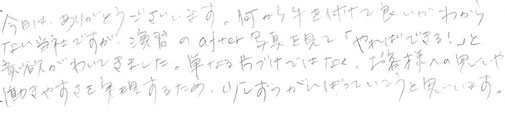 今日は、ありがとうございます。何から手を付けて良いかわから
ない当社ですが、演習のafter写真を見て「やればできる!」と
意欲がわいてきました。単なる片づけではなく、お客様への思いや
働きやすさを実現するため、少しずつがんばっていこうと思います。